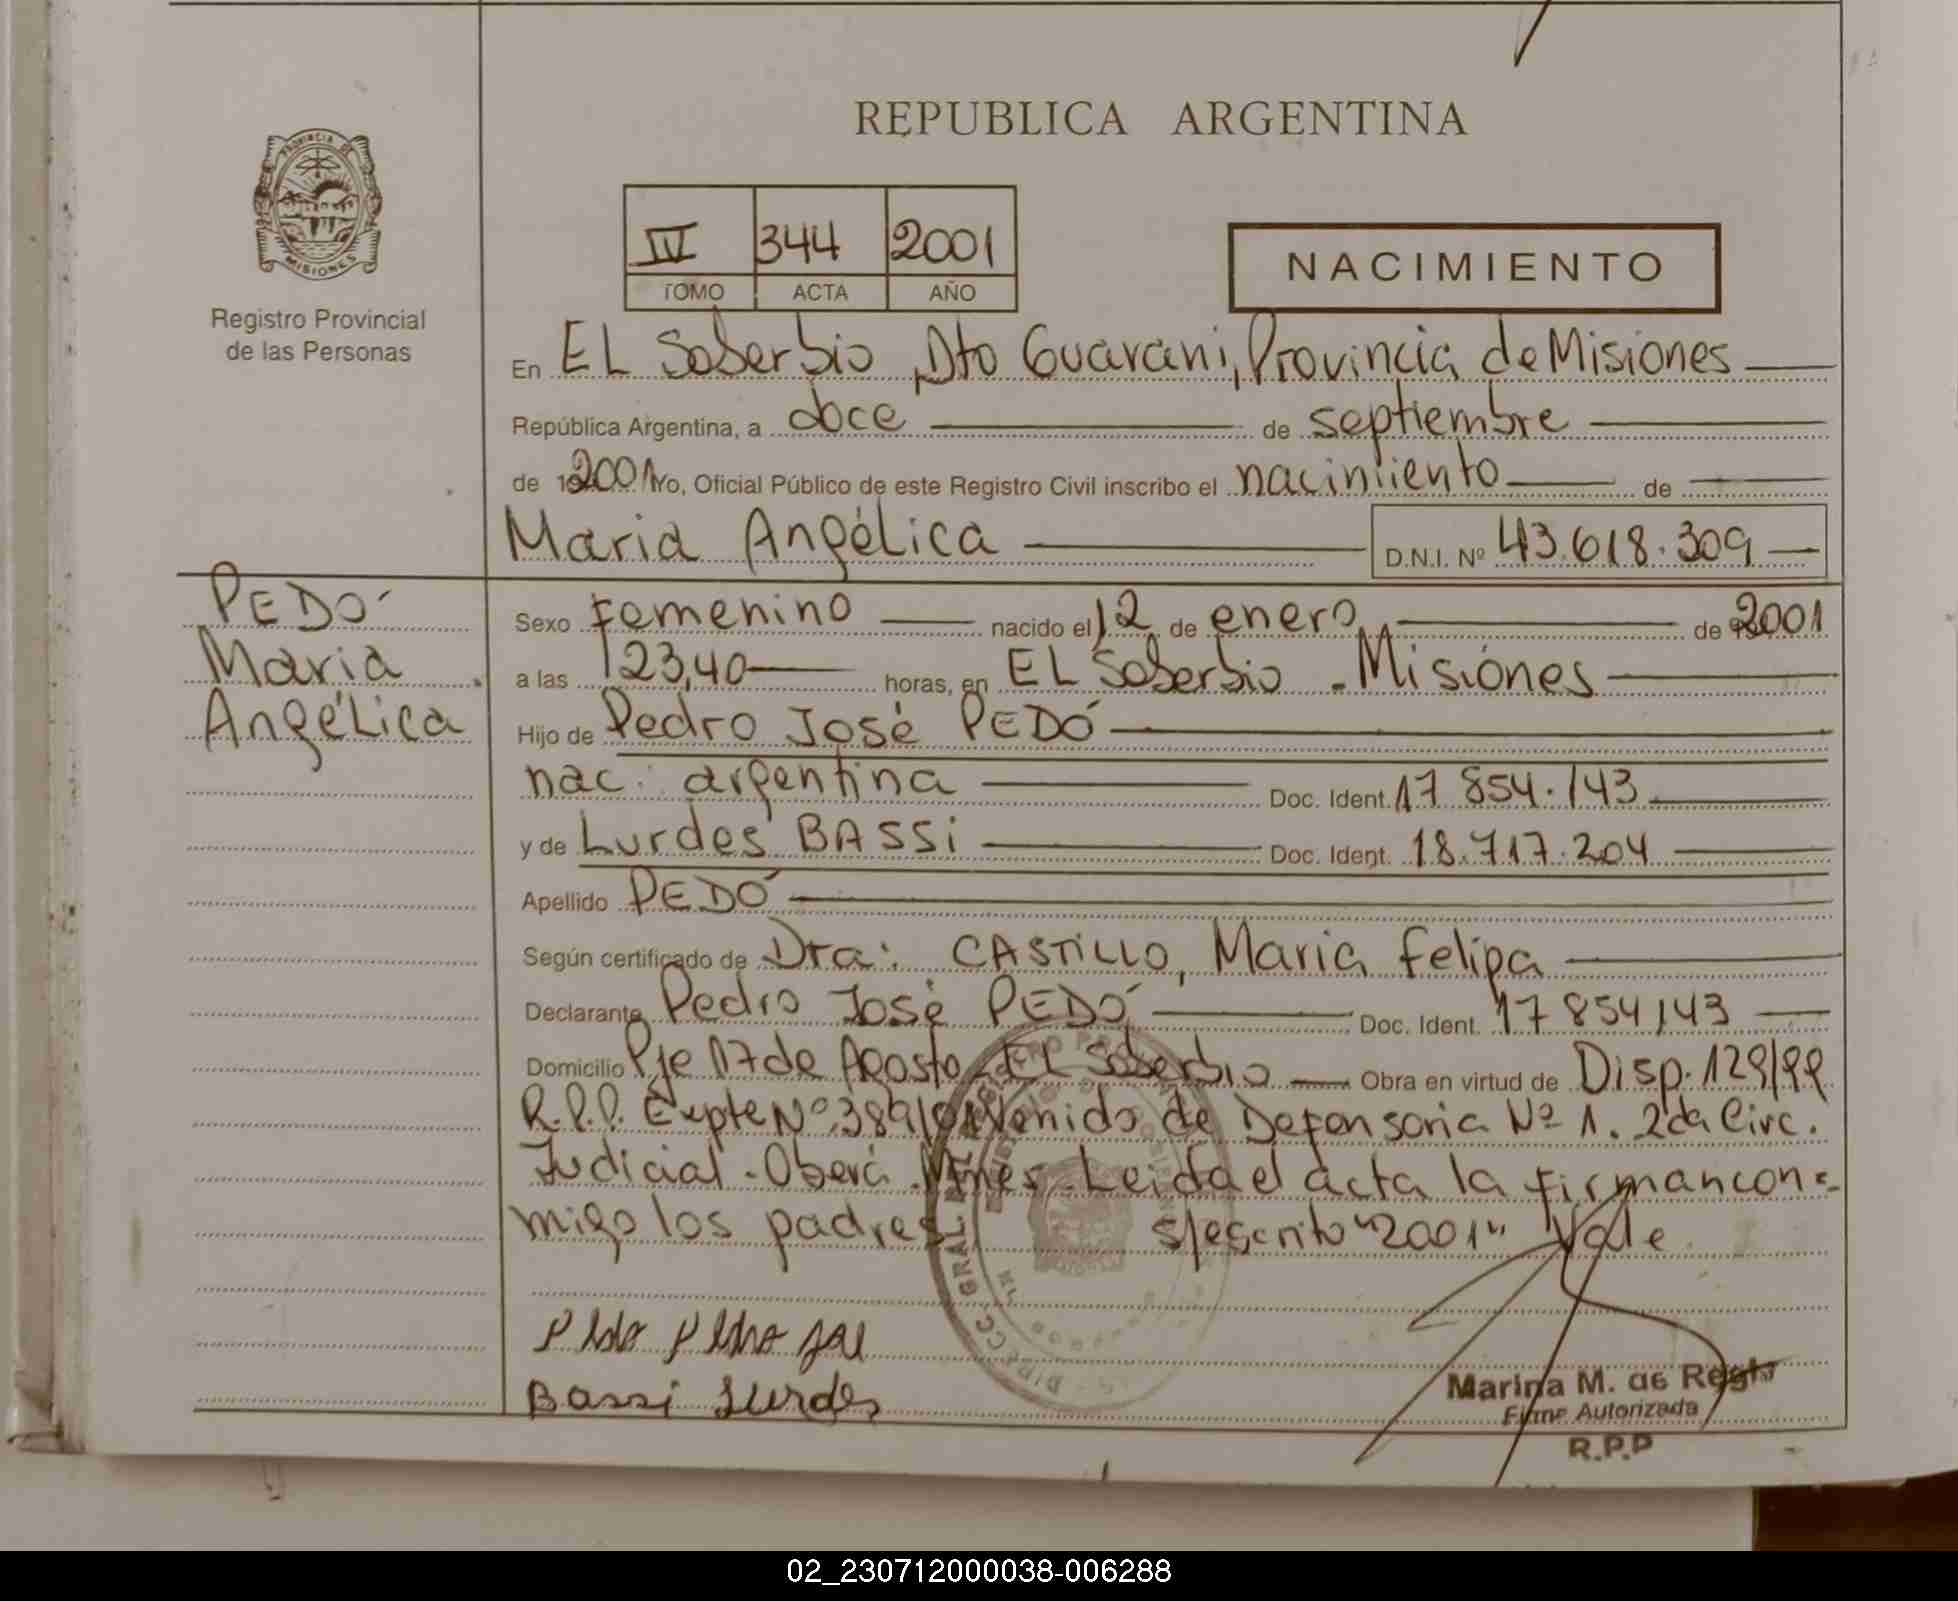 REPUBLICA ARGENTINA
PROVINCIA DE
MISIONES
Registro Provincial
de las Personas
IV 344 2001
TOMO ACTA AÑO
NACIMIENTO
En EL Soberbio, Dto Guarani, Provincia de Misiones
República Argentina, a doce de septiembre
de 2001 Yo, Oficial Público de este Registro Civil inscribo el nacimiento de
Maria Angélica D.N.I. Nº 43.618.309
PEDÓ
Maria
Angélica
Sexo Femenino nacido el 12 de enero de 2001
a las 23,40 horas, en EL Soberbio - Misiónes
Hijo de Pedro José PEDÓ
nac: argentina Doc. Ident. 17 854.143
y de Lurdes BASSi Doc. Ident. 18.717.204
Apellido PEDÓ
Según certificado de Dra: CASTILLO, Maria Felipa
Declarante Pedro José PEDÓ Doc. Ident. 17 854143
Domicilio Pje 17 de Agosto - EL Soberbio Obra en virtud de Disp. 129/99
R.P.P. Expte Nº 389/01 Venido de Defensoria Nº 1. 2da Circ.
Judicial - Oberá Mnes - Leida el acta la firman con=
migo los padres s/escrito "2001" Vale
Bassi Lurdes
Marina M. de Regis
Firma Autorizada
R.P.P
02_230712000038-006288